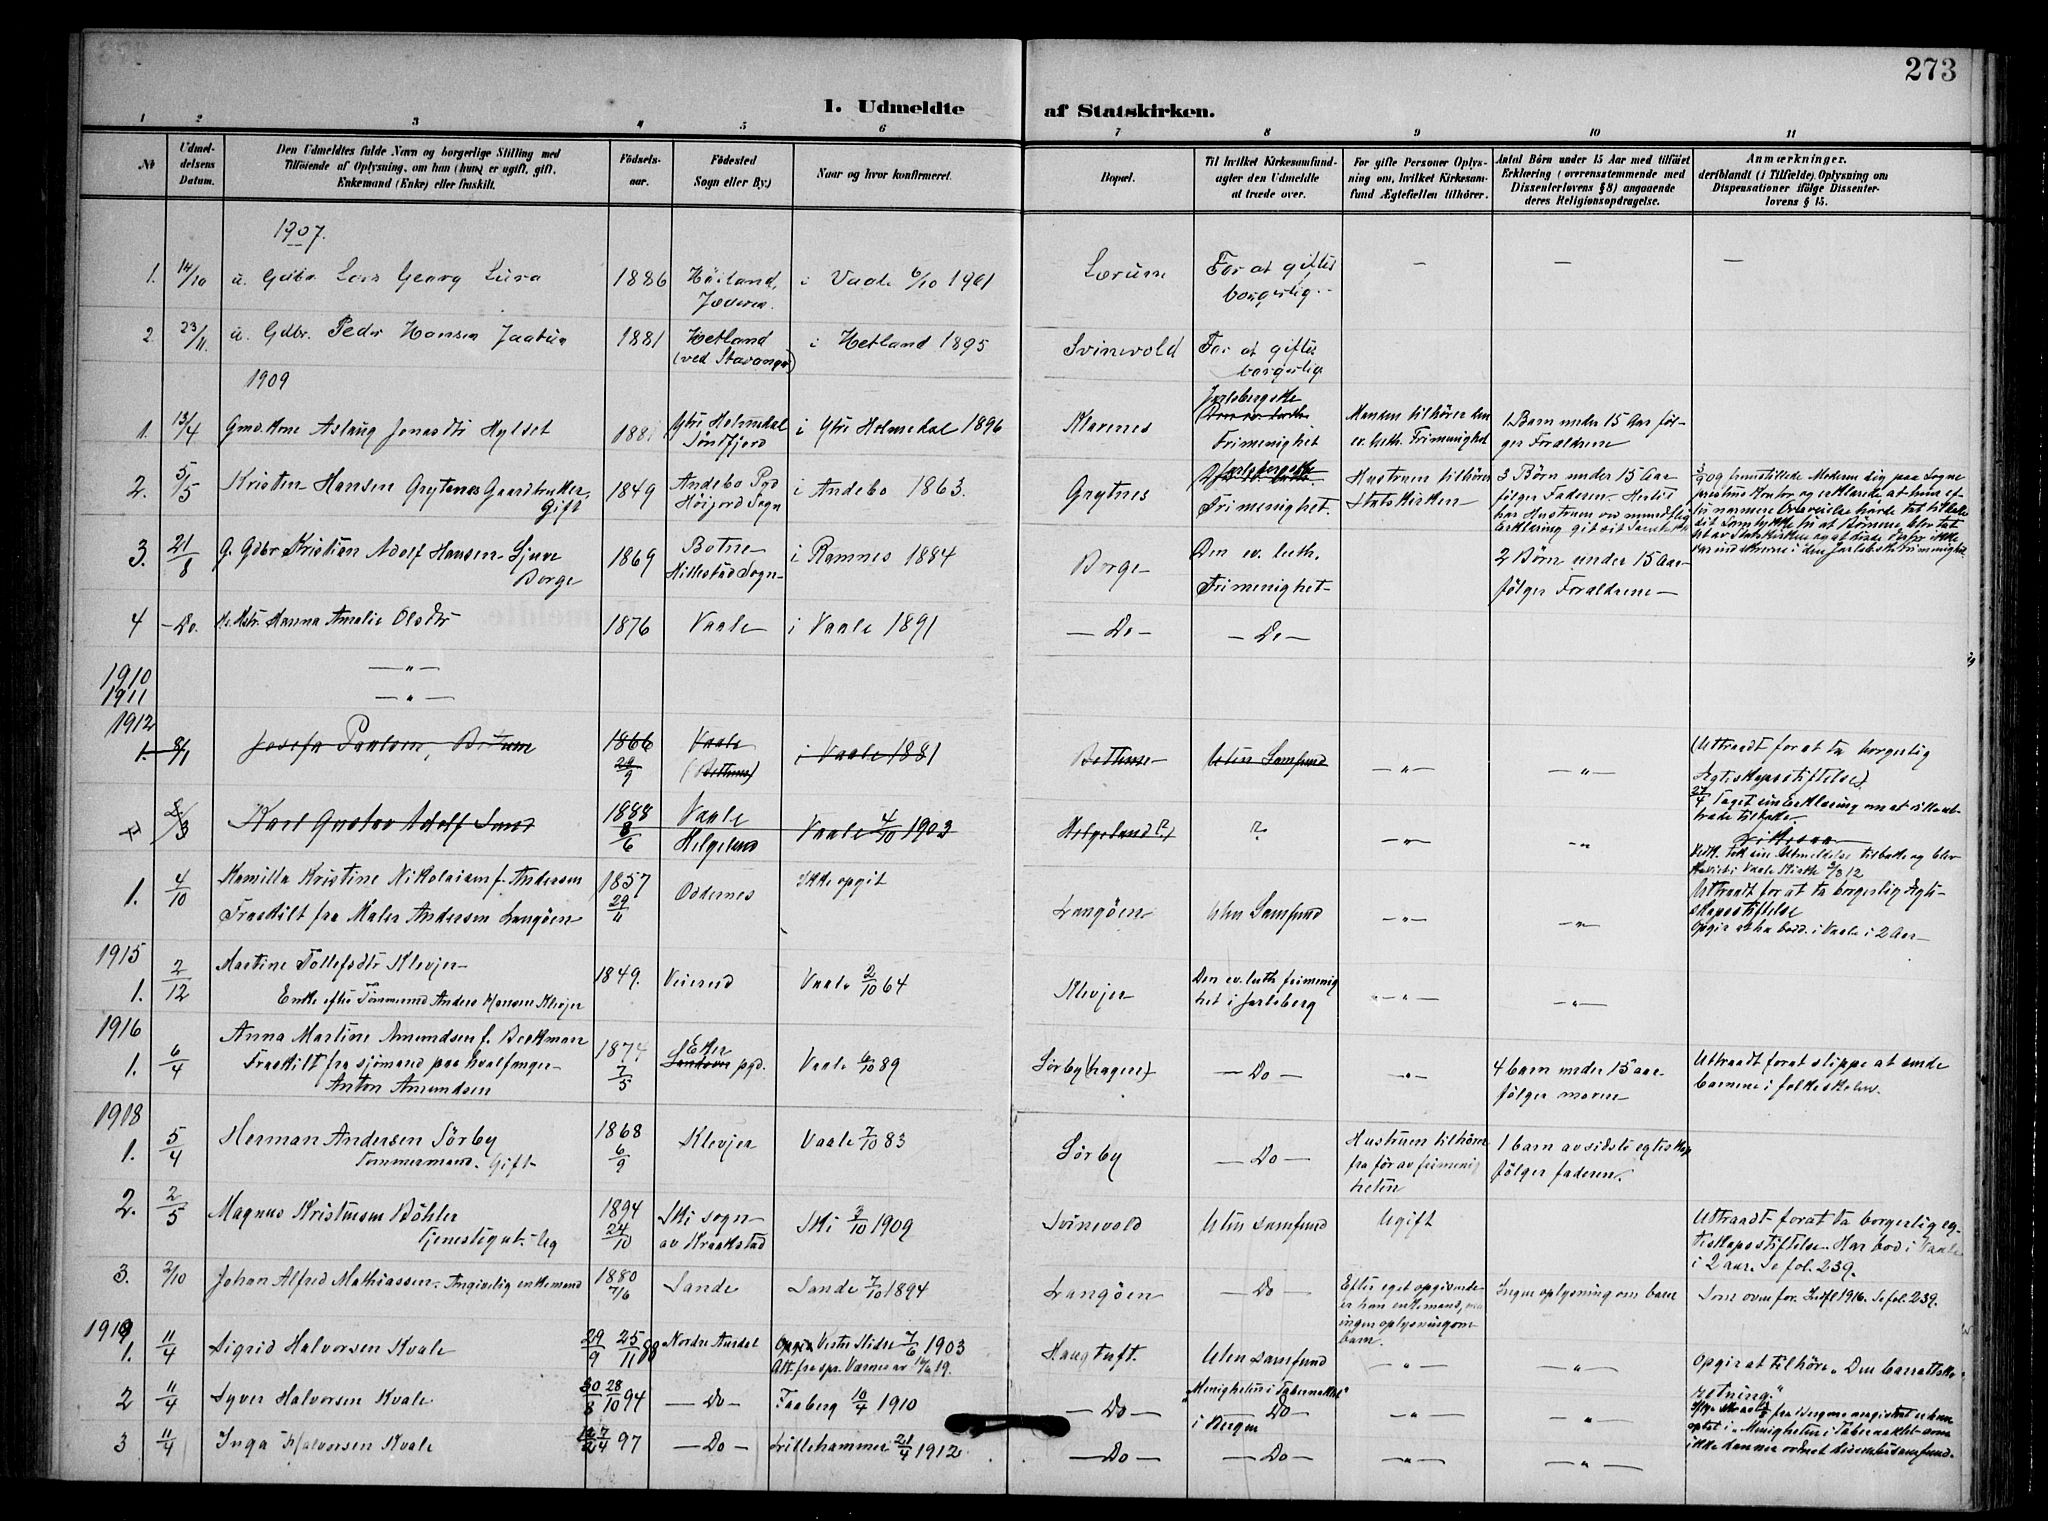 273
I. Udmeldte af Statskirken.
1 2 3 4 5 6 7 8 9 10 11
No
Udmeldelsens Datum.
Den Udmeldtes fulde Navn og borgerlige Stilling med
Tilföiende af Oplysning, om han (hun) er ugift, gift,
Enkemand (Enke) eller fraskilt.
Födselsaar.
Födested
Sogn eller By.)
Naar og hvor konfirmeret.
Bopæl.
Til hvilket Kirkesamfund
agter den Udmeldte
at træde over.
For gifte Personer Oplysning
om, hvilket Kirkesamfund
Ægtefællen tilhörer.
Antal Börn under 15 Aar med tilföiet
Erklæring (overensstemmende med
Dissenterlovens § 8) angaaende
deres Religionsopdragelse.
Anmærkninger,
deriblandt (i Tilfælde) Oplysning om
Dispensationer ifölge Dissenterlovens
§ 15.
1907.
1. 14/10 u. Gdbr. Lars Georg Lura 1886 Höiland, Jæderen i Vaale 6/10 1901 Lærum For at giftes borgerlig. — — —
2. 23/11. u. Gdbr. Peder Hansen Jaatun 1881 Hetland (ved Stavanger) i Hetland 1895 Svinevold For at giftes borgerlig
1909
1. 13/4 Gmd. Kone Aslaug Jonasdtr Hyldet 1881 Ytre Holmedal Söndfjord i Ytre Holmedal 1896 Klavenes Jarlsbergske Den ev. luth. Frimenighet Manden tilhörer den ev. luth. Frimenighet 1 Barn under 15 Aar fölger Forældrene
2. 5/5 Kristen Hansen Grytenes Gaardbruker Gift 1849 Andebo Pgd Höijord Sogn i Andebo 1863. Grytnes Jarlsbergske Frimenighet. Hustruen tilhörer Statskirken 3 Börn under 15 Aar fölger Faderen. Hertil har Hustruen mundtlig Erklæring git sit Samtykke
3. 21/8 G. Gdbr Kristian Adolf Hansen Sjue Borge 1869 Botne Hillestad Sogn i Ramnes 1884 Borge Den ev. luth. Frimenighet 2 Börn under 15 Aar fölger Forældrene
4 Do. Hanna Amalie Olsdtr 1876 Vaale i Vaale 1891 — Do — — Do —
1910 — " —
1911 — " —
1912
1. 8/1 Josefa Paulsen, 1866 29/9 Vaale i Vaale 1881 Uten Samfund — " — — " — Uttraadt for at ta borgerlig Egteskapsstiftelse
8/3 Karl Gustav Adolf Sand 1888 8/6 Vaale Helgeland Vaale 4/10 1903 Helgeland (?) ? — " — — " —
27/4 Taget sin Erklæring om at ville uttræde tilbake
Vedk. tok sin Utmeldelse tilbake og blev
1. 4/10 Kamilla Kristine Nikolaisen f. Andersen Fraskilt fra Maler Andersen Langöen 1857 29/11 Oddernes Ikke opgit Langöen Uten Samfund — " — — " — Uttraadt for at ta borgerlig Egteskapsstiftelse
Opgir at ha bodd i Vaale i 2 Aar
1915
1. 2/12 Martine Tollefsdtr Klevjer Enke efter Tömmermand Anders Hansen Klevjer 1849. Veierud Vaale 2/10 64 Klevjer Den ev. luth frimenighet i Jarlsberg — " — — " —
1916
1. 6/4 Anna Martine Amundsen f. Beckman Fraskilt fra sjömand paa hvalfanger Anton Amundsen 1874 7/5 Eker pgd. Vaale 6/10 89 Sörby (hagen) — Do — — " — 4 barn under 15 aar fölger moren Uttraadt for at slippe at sende barnene i folkeskolen.
1918
1. 5/4 Herman Andersen Sörby Tömmermand. Gift 1868 6/9 Klevjer Vaale 7/10 83 Sörby — Do — Hustruen tilhörer fra för av frimenigheten 1 barn av sidste egteskap fölger faderen.
2. 2/5 Magnus Kristensen Böhler tjenestegut. Ug 1894 24/10 Ski sogn av Kraakstad Ski 3/10 1909 Svinevold Uten samfund Ugift Uttraadt for at ta borgerlig egteskapsstiftelse. Har bod i Vaale i 2 aar. Se fol. 239.
3. 2/10 Johan Alfred Mathiassen. Angivelig enkemand 1880 7/6 Sande Sande 7/10 1894 Langöen — Do — Efter eget opgivende er han enkemand, men ingen oplysning om barn. Ingen oplysning om barn Som ovenfor. Indfl 1916. Se fol. 239.
1919
1. 11/4 Sigrid Halvorsen Kvale 29/9 25/11 88 Nordre Aurdal Opgir Vestre Slidre 7/6 1903 Haugtuft. Uten samfund — " — — " — Opgir at tilhöre "Den barrattske retning."
2 11/4 Syver Halvorsen Kvale 30/8 28/10 94 — Do — Faaberg 10/4 1910 — Do — "Menigheten i Tabernaklet" i Bergen — Do — — " — — " —
3 11/4 Inga Halvorsen Kvale 97 — Do — Lillehammer 21/4 1912 — Do — — Do — — " — — " —